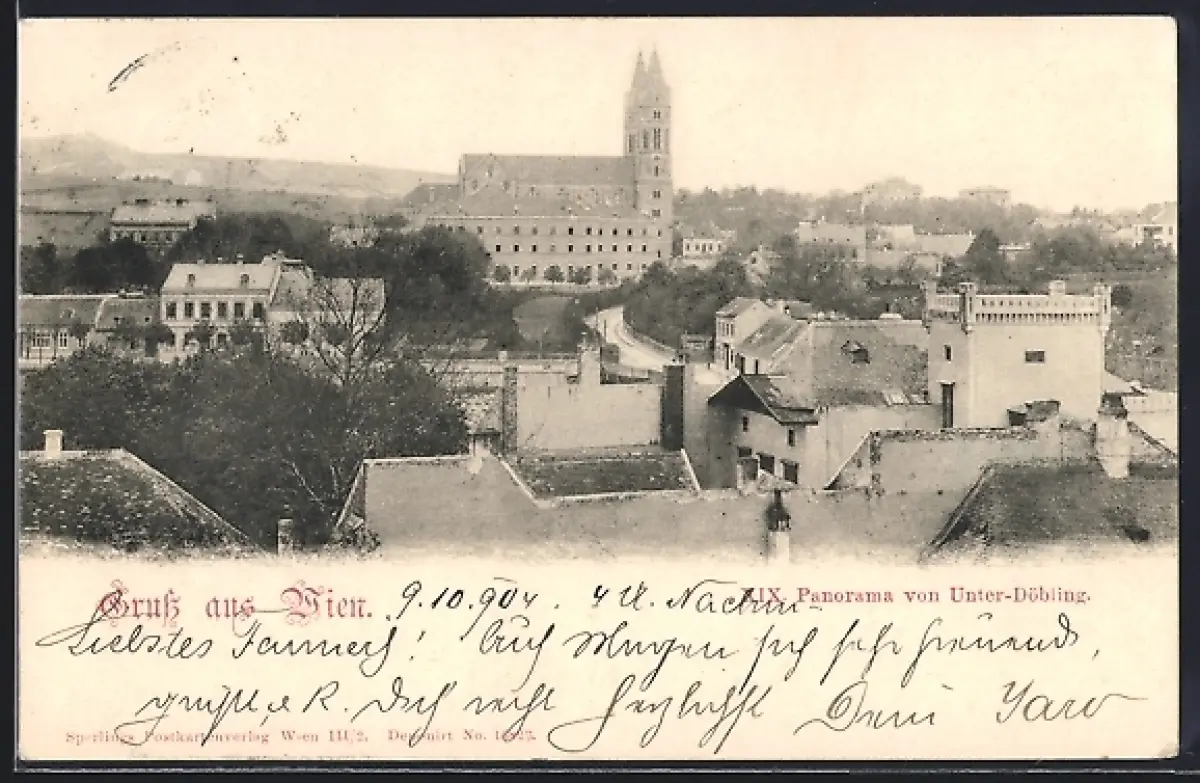 Gruß aus Wien.
XIX. Panorama von Unter-Döbling.
9.10.904. 4 U. Nachm
Liebstes ! Auf Morgen sich sehr freuend,
grüßt, u. K. Dich recht herzlichst Dein Jaro
Sperlings Postkartenverlag Wien III/2. Deponirt No.